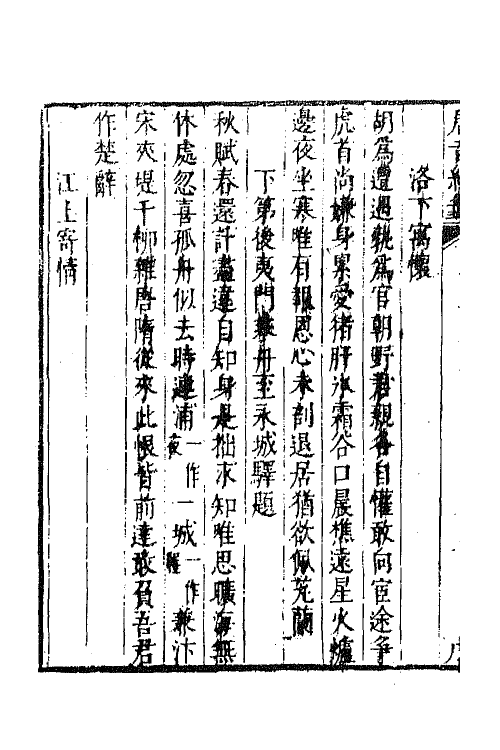 洛下寓懷
胡為遭遇孰為官朝野君親各自懽敢向宦途爭
虎首尚嫌身累愛猪肝冰霜谷口晨樵遠星火爐
邊夜坐寒唯有報恩心未剖退居猶欲佩芄蘭
下第後夷門乘舟至永城驛題
秋賦春還計盡違自知身是拙求知唯思曠海無
休處忽喜孤舟似去時連浦一作夜一城一作程兼汴
宋夾堤千柳雜唐隋從來此恨皆前達敢負吾君
作楚辭
江上寄情